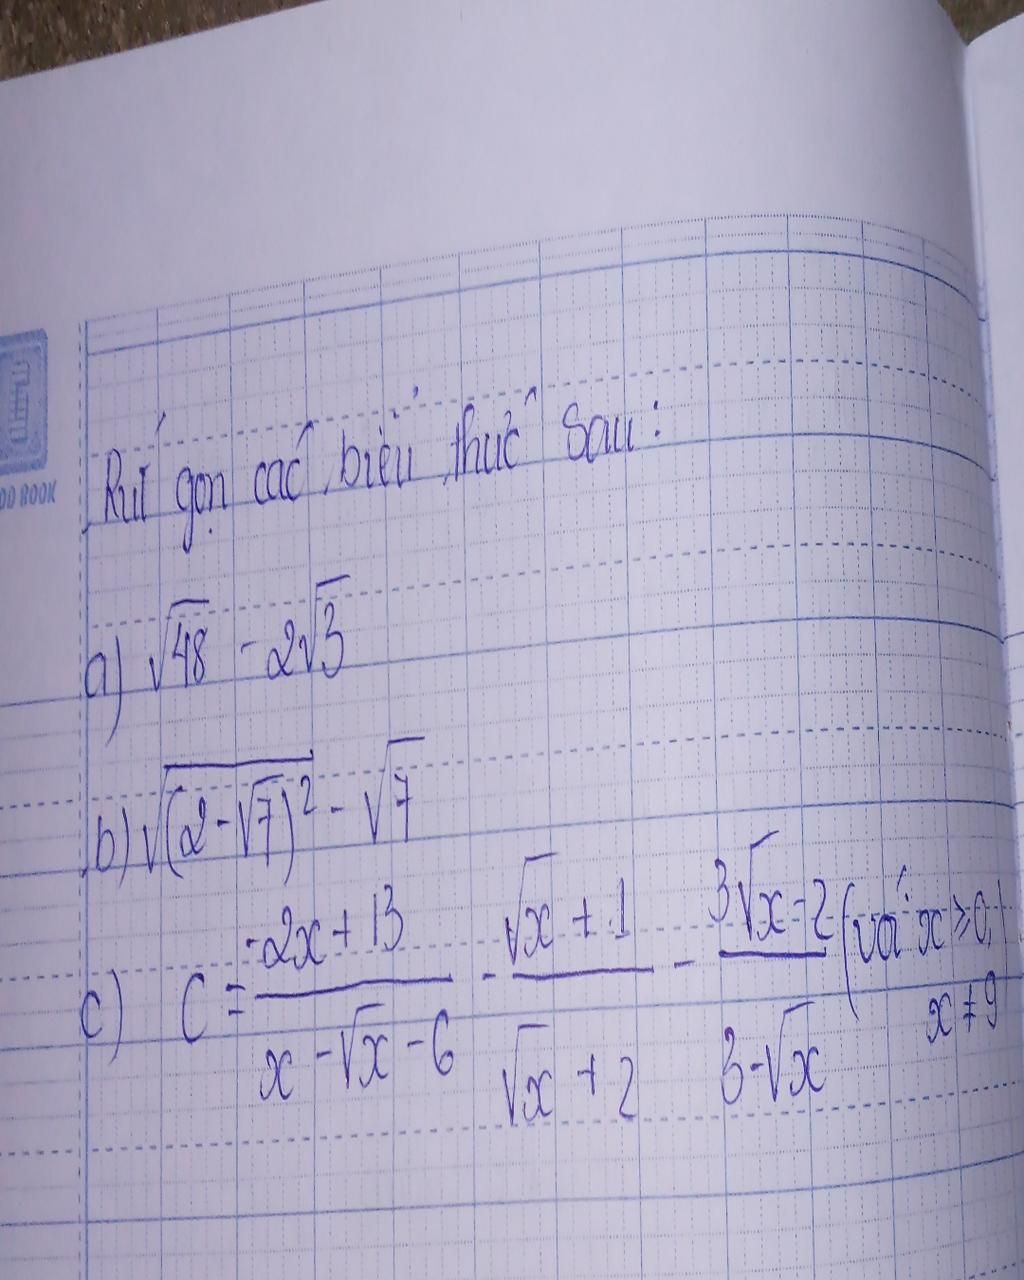 Rút gọn các biểu thức sau:
a) √48 - 2√3
b) √(2-√7)² - √7
c) C = (-2x + 13)/(x - √x - 6) - (√x + 1)/(√x + 2) - (3√x - 2)/(3 - √x) (với x ≥ 0, x ≠ 9)
OO BOOK